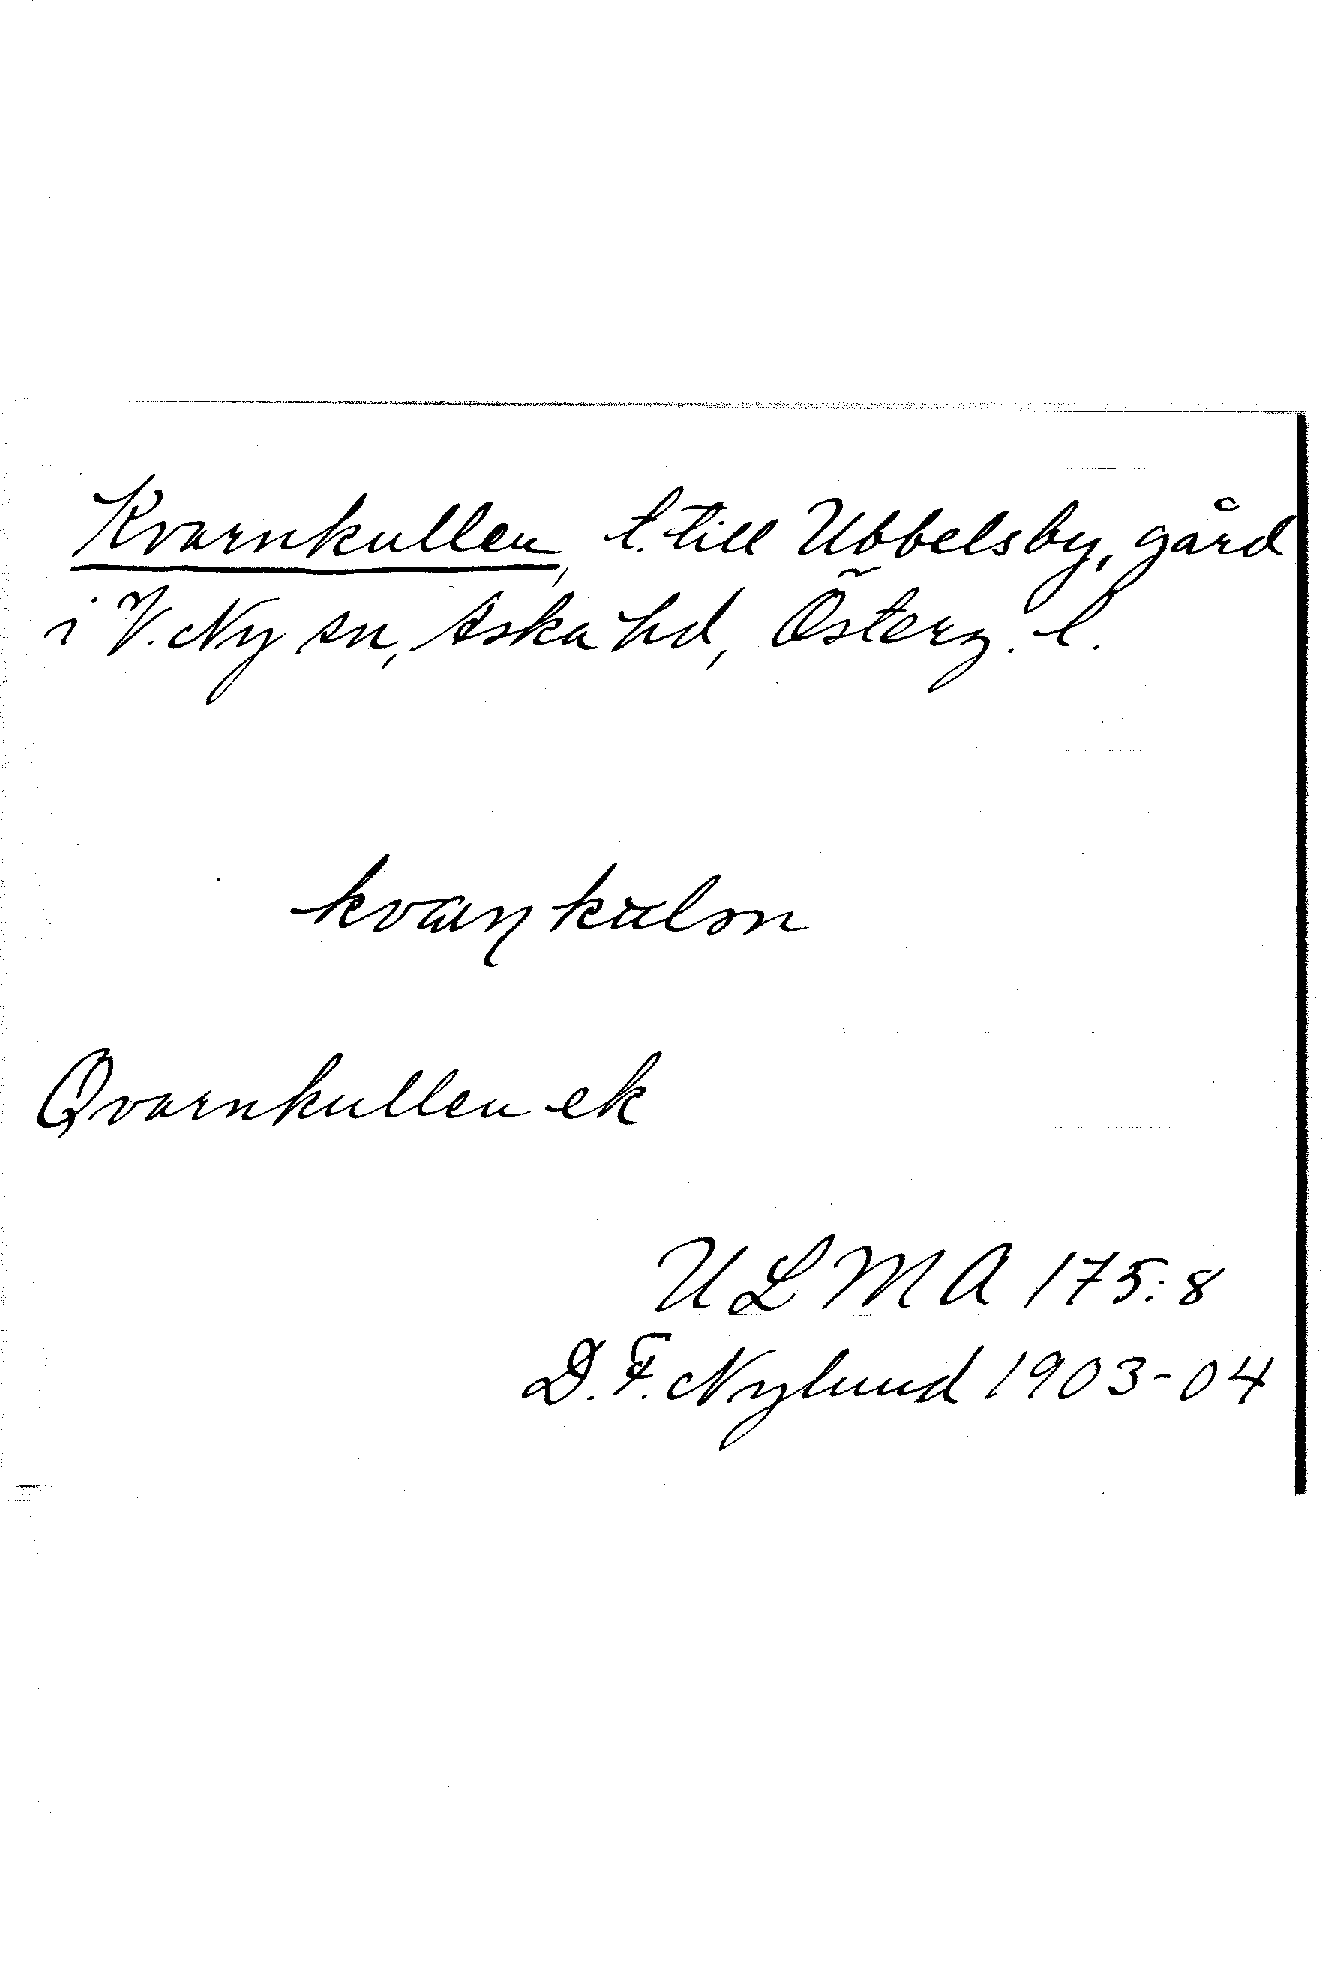 Kvarnkullen, t. till Ubbelsby, gård
i V. Ny sn, Aska hd, Österg. l.
kvaŋkulən
Qvarnkullen ek
ULMA 175:8
D. F. Nylund 1903-04